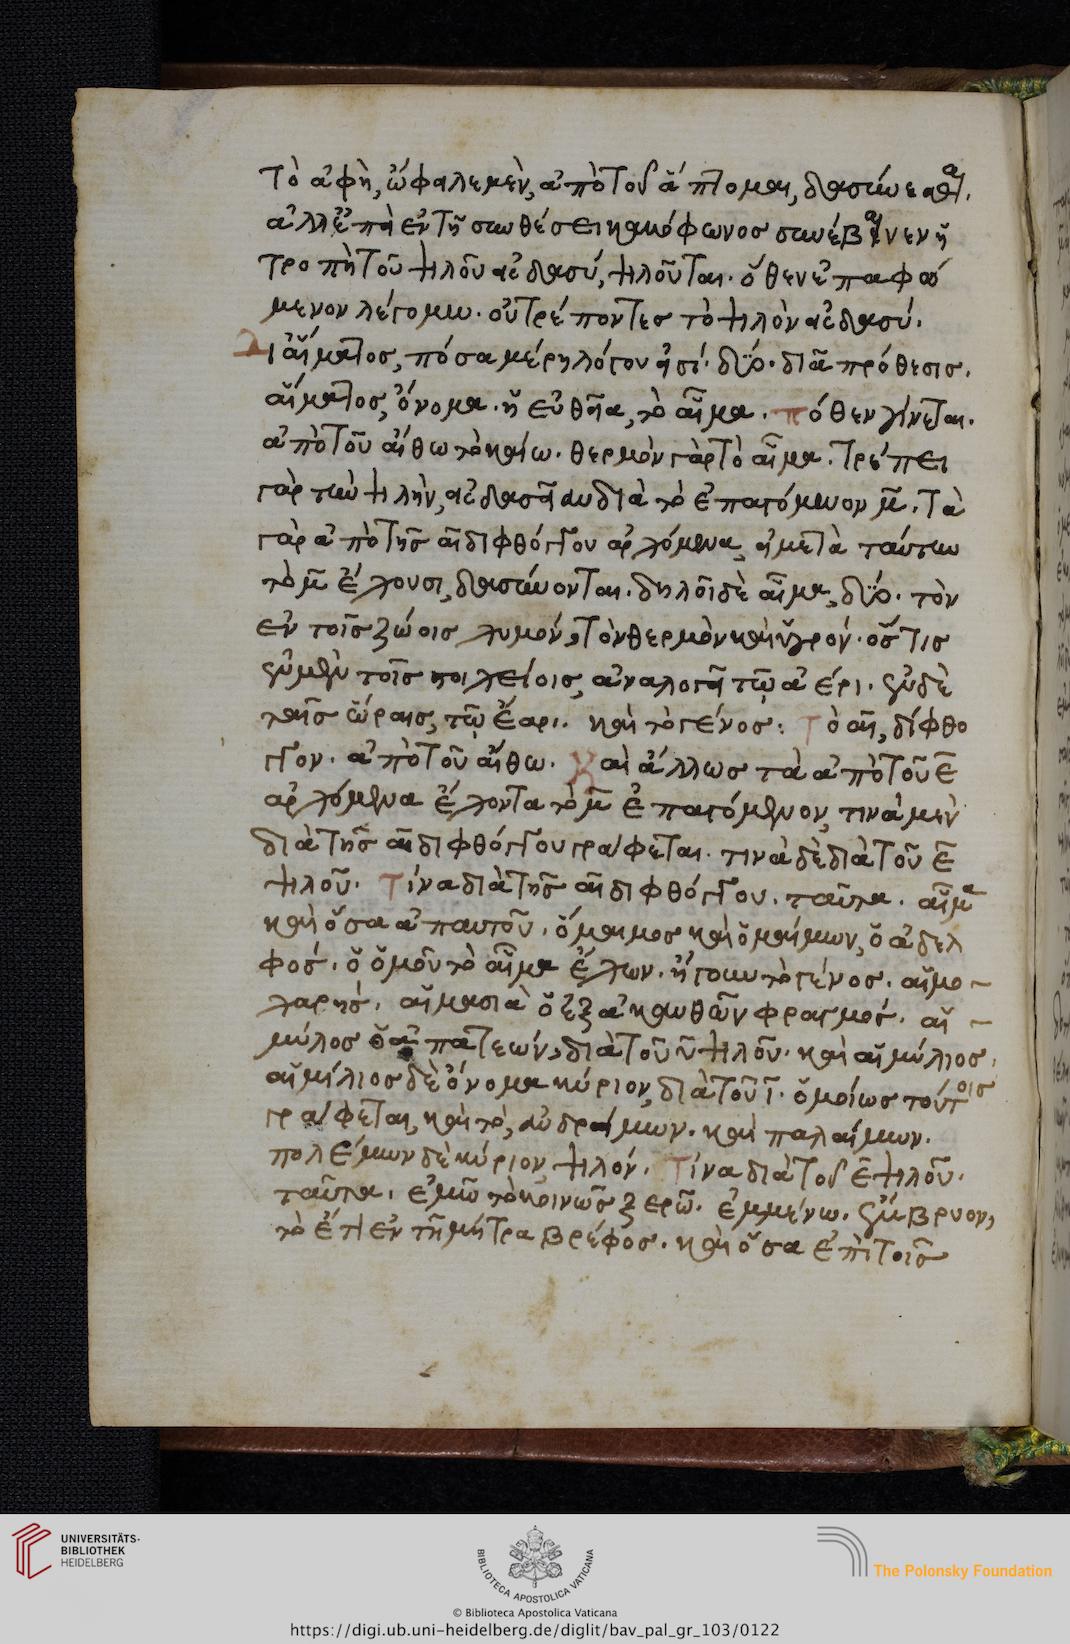 τὸ ἀφὴ, ὠφαλεμὲν, ἀπὸ τοῦ ἅπτομαι, δασύνεσθαι.
ἀλλ' ἐπεὶ ἐν τῇ συνθέσει κακόφωνος συνέβαινεν ἡ
τροπὴ τοῦ ψιλοῦ εἰς δασύ, ψιλοῦται. ὅθεν ἐπαφώ
μενον λέγομεν. οὐ τρέποντες τὸ ψιλὸν εἰς δασύ.
Δι αἵματος, πόσα μέρη λόγου εἰσί. δύο. διὰ πρόθεσις.
αἵματος, ὄνομα. ἡ εὐθεῖα, τὸ αἷμα. πόθεν γίνεται.
ἀπὸ τοῦ αἴθω τὸ καίω. θερμὸν γὰρ τὸ αἷμα. τρέπει
γὰρ τὴν ψιλὴν, εἰς δασεῖαν διὰ τὸ ἐπαγόμενον μ̅. τὰ
γὰρ ἀπὸ τῆς αι διφθόγγου ἀρχόμενα, εἰ μετὰ ταύτην
τὸ μ̅ ἔχουσι, δασύνονται. δηλοῖ δὲ αἷμα, δύο. τὸν
ἐν τοῖς ζώοις χυμόν, τὸν θερμὸν καὶ ὑγρόν. ὅστις
ἐν μὲν τοῖς στοιχείοις, ἀναλογεῖ τῷ ἀέρι. ἐν δὲ
ταῖς ὥραις, τῷ ἔαρι. καὶ τὸ γένος: Τὸ αι, δίφθο
γγον. ἀπὸ τοῦ αἴθω. Καὶ ἄλλως τὰ ἀπὸ τοῦ ε̅
ἀρχόμενα ἔχοντα τὸ μ̅ ἐπαγόμενον, τινὰ μὲν
διὰ τῆς αι διφθόγγου γράφεται. τινὰ δὲ διὰ τοῦ ε̅
ψιλοῦ. Τίνα διὰ τῆς αι διφθόγγου. ταῦτα. αἷμα
καὶ ὅσα ἀπ' αυτοῦ. ὅμαιμος καὶ ὁμαίμων, ὁ ἀδελ
φός. ὁ ὁμοῦ τὸ αἷμα ἔχων. ἤγουν τὸ γένος. αἱμο-
χαρής. αἱμασιὰ ὁ ἐξ ἀκανθῶν φραγμός. αἱ-
μύλος ὁ ἀπατεών, διὰ τοῦ υ̅ ψιλοῦ. καὶ αἱμύλιος.
αἱμίλιος δὲ ὄνομα κύριον, διὰ τοῦ ι̅. ὁμοίως τούτοις
γράφεται, καὶ τὸ, ανδραίμων. καὶ παλαίμων.
πολέμων δὲ κύριον, ψιλόν. Τίνα διὰ τοῦ ε̅ ψιλοῦ.
ταῦτα. ἐμῶ τὸ κοινῶς ξερῶ. ἐμμένω. ἔμβρυον,
τὸ ἔτι ἐν τῇ μήτρα βρέφος. καὶ ὅσα ἐπὶ τοῖς
UNIVERSITÄTS-
BIBLIOTHEK
HEIDELBERG
BIBLIOTECA APOSTOLICA VATICANA
The Polonsky Foundation
© Biblioteca Apostolica Vaticana
https://digi.ub.uni-heidelberg.de/diglit/bav_pal_gr_103/0122